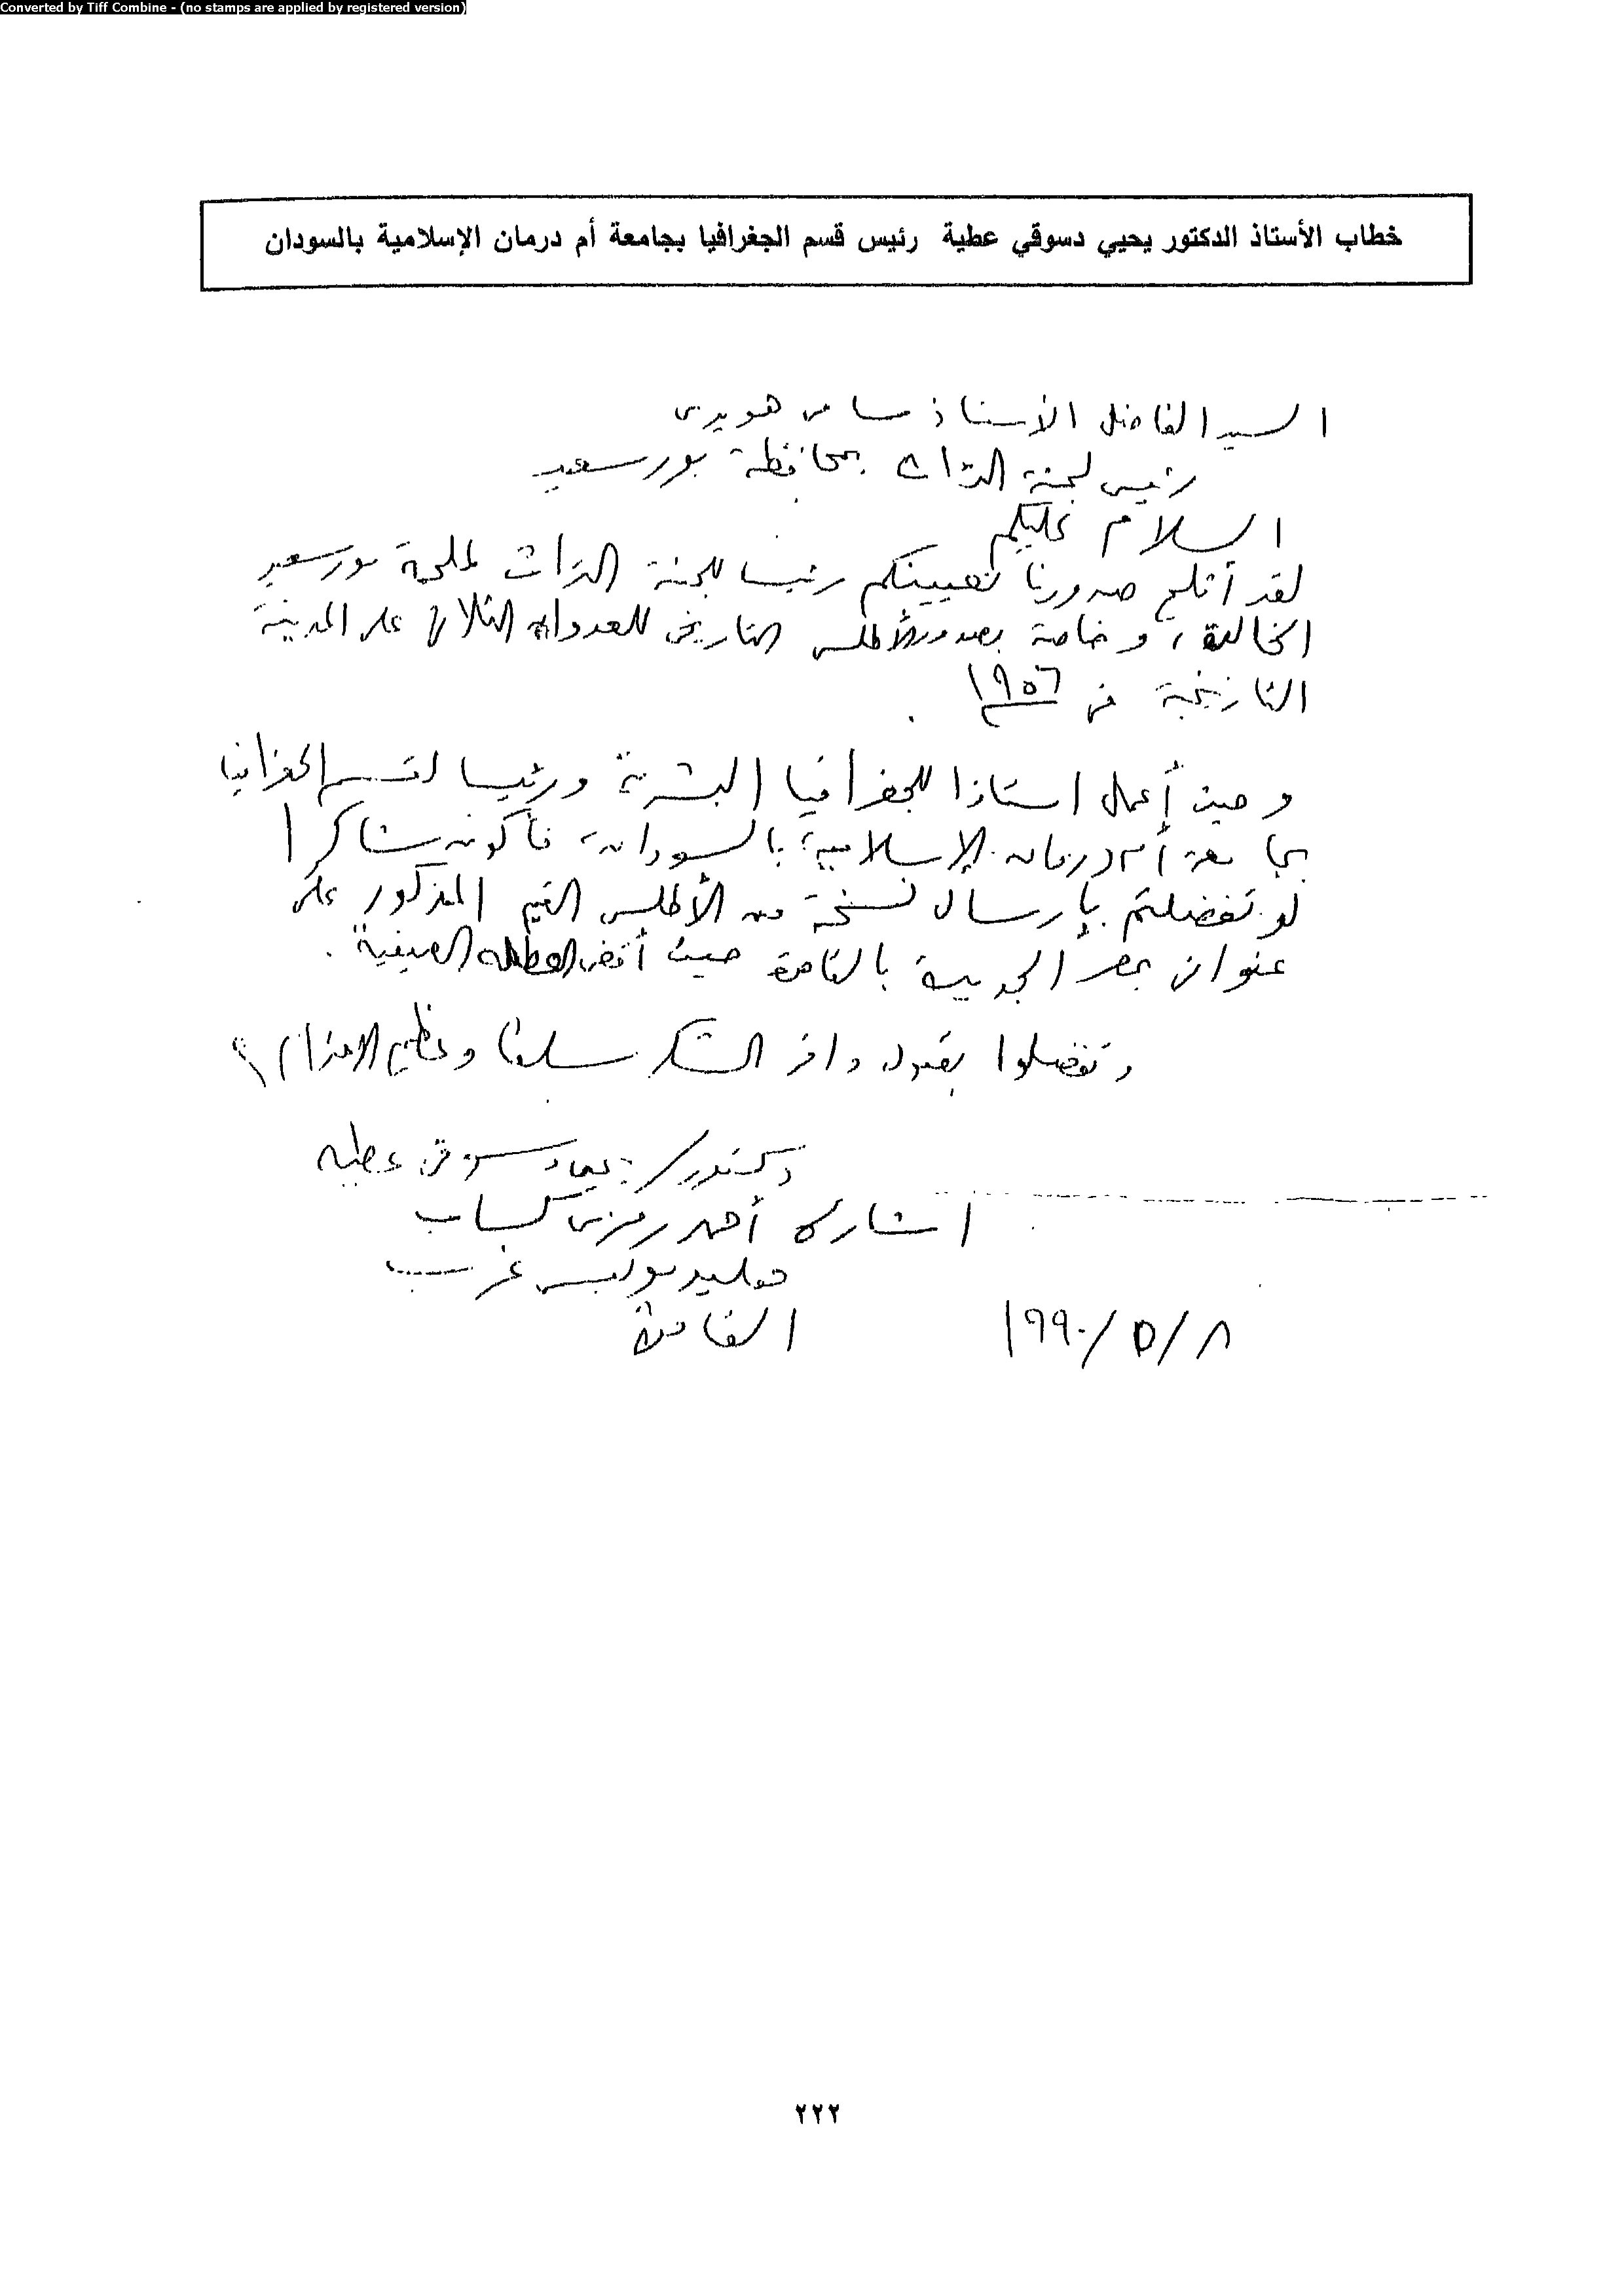 Converted by Tiff Combine - (no stamps are applied by registered version)
خطاب الأستاذ الدكتور يحيي دسوقي عطية رئيس قسم الجغرافيا بجامعة أم درمان الإسلامية بالسودان
السيد الفاضل الأستاذ سامى هويدى
رئيس لجنة التراث بمحافظة بورسعيد
السلام عليكم
لقد أثلج صدورنا تعيينكم رئيسا للجنة التراث لملحمة بورسعيد
الخالدة، وخاصة بصدور الأطلس التاريخى للعدوان الثلاثى على المدينة
التاريخية فى ١٩٥٦ .
وحيث أعمل استاذا للجغرافيا البشرية ورئيسا لقسم الجغرافيا
بجامعة أم درمان الإسلامية بالسودان، فأكون شاكرا
لو تفضلتم بإرسال نسخة من الأطلس القيم المذكور على
عنوانى بمصر الجديدة بالقاهرة حيث أقضى العطلة الصيفية .
وتفضلوا بقبول وافر الشكر سلفا وعظيم الاحترام
دكتور / دسوقى عطيه
١ شارع أحمد رمزى كساب
هليوبوليس غرب
القاهرة
٨/٥/١٩٩٠
٢٢٢